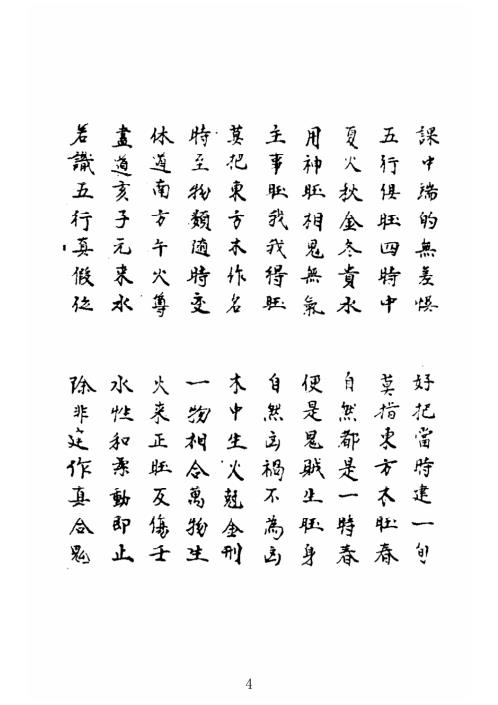 課中端的無差悞
好把當時建一旬
五行俱旺四時中
莫指東方木旺春
夏火秋金冬貴水
自然都是一時春
用神旺相鬼無氣
便是鬼賊生旺身
主事旺我我得旺
自然凶禍不為凶
莫把東方木作名
木中生火尅金刑
時至物類隨時变
一物相合萬物生
休道南方午火尊
火来正旺反傷壬
盡道亥子元来水
水性和柔動即止
若識五行真假位
除非 作真合鬼
4